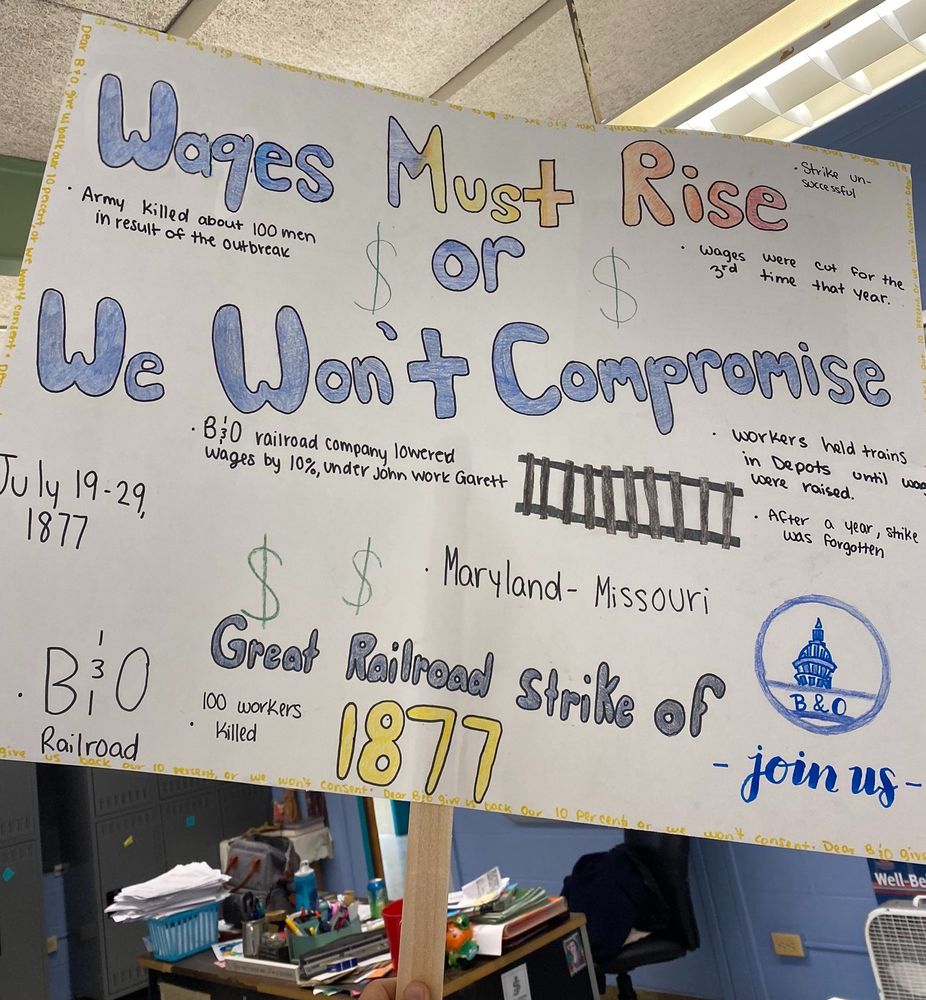 Wages Must Rise
or
We Won't Compromise
· Strike un-
successful
· Army killed about 100 men
in result of the outbreak
$ $
· wages were cut for the
3rd time that year.
· B&O railroad company lowered
wages by 10%, under John work Garett
· workers held trains
in Depots until
were raised.
· After a year, strike
was forgotten
July 19-29,
1877
$ $
· Maryland- Missouri
Great Railroad Strike of
1877
· B&O
Railroad
· 100 workers
killed
B & O
- join us -
give us back our 10 percent, or we won't consent. Dear B&O give us back our 10 percent or we won't consent. Dear B&O give
Dear B&O, give us back our 10 percent, or we won't consent.
Well-Be